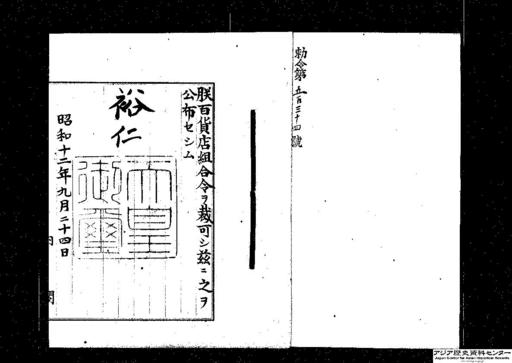 勅令第五百三十四號
朕百貨店組合令ヲ裁可シ茲ニ之ヲ
公布セシム
裕仁
天皇御璽
昭和十二年九月二十四日
内閣
アジア歴史資料センター
Japan Center for Asian Historical Records